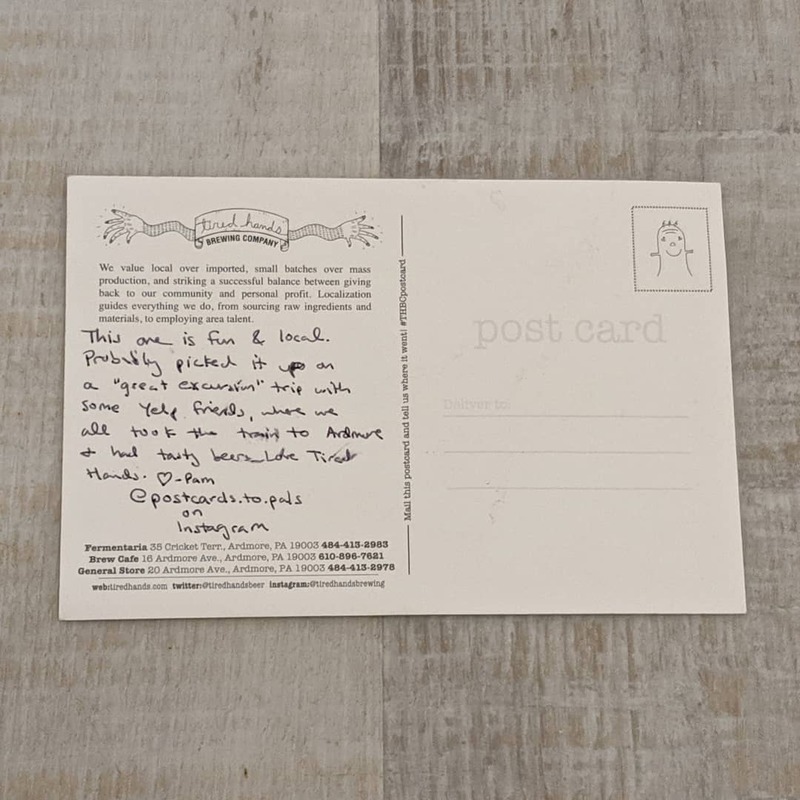 tired hands
BREWING COMPANY
We value local over imported, small batches over mass
production, and striking a successful balance between giving
back to our community and personal profit. Localization
guides everything we do, from sourcing raw ingredients and
materials, to employing area talent.
This one is fun & local.
Probably picked it up on
a "great excursion" trip with
some Yelp friends, where we
all took the train to Ardmore
& had tasty beers. Love Tired
Hands. ♡-Pam
@postcards.to.pals
on
Instagram
Fermentaria 35 Cricket Terr., Ardmore, PA 19003 484-413-2983
Brew Cafe 16 Ardmore Ave., Ardmore, PA 19003 610-896-7621
General Store 20 Ardmore Ave., Ardmore, PA 19003 484-413-2978
web:tiredhands.com twitter:@tiredhandsbeer instagram:@tiredhandsbrewing
Mail this postcard and tell us where it went! #THBCpostcard
post card
Deliver to: